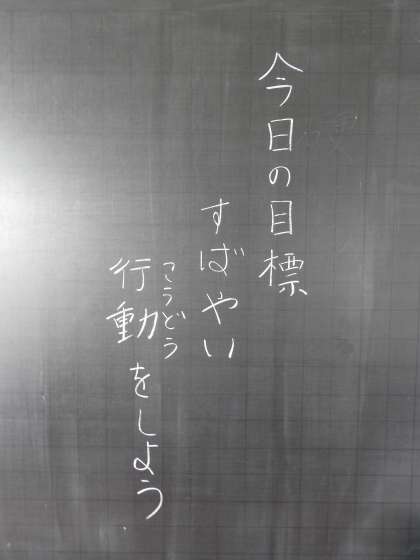 今日の目標
すばやい
行動をしよう
こうどう